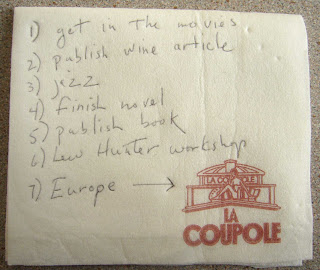 1) get in the movies
2) publish wine article
3) jazz
4) finish novel
5) publish book
6) Lew Hunter workshop
7) Europe →
LA COUPOLE
LA
COUPOLE